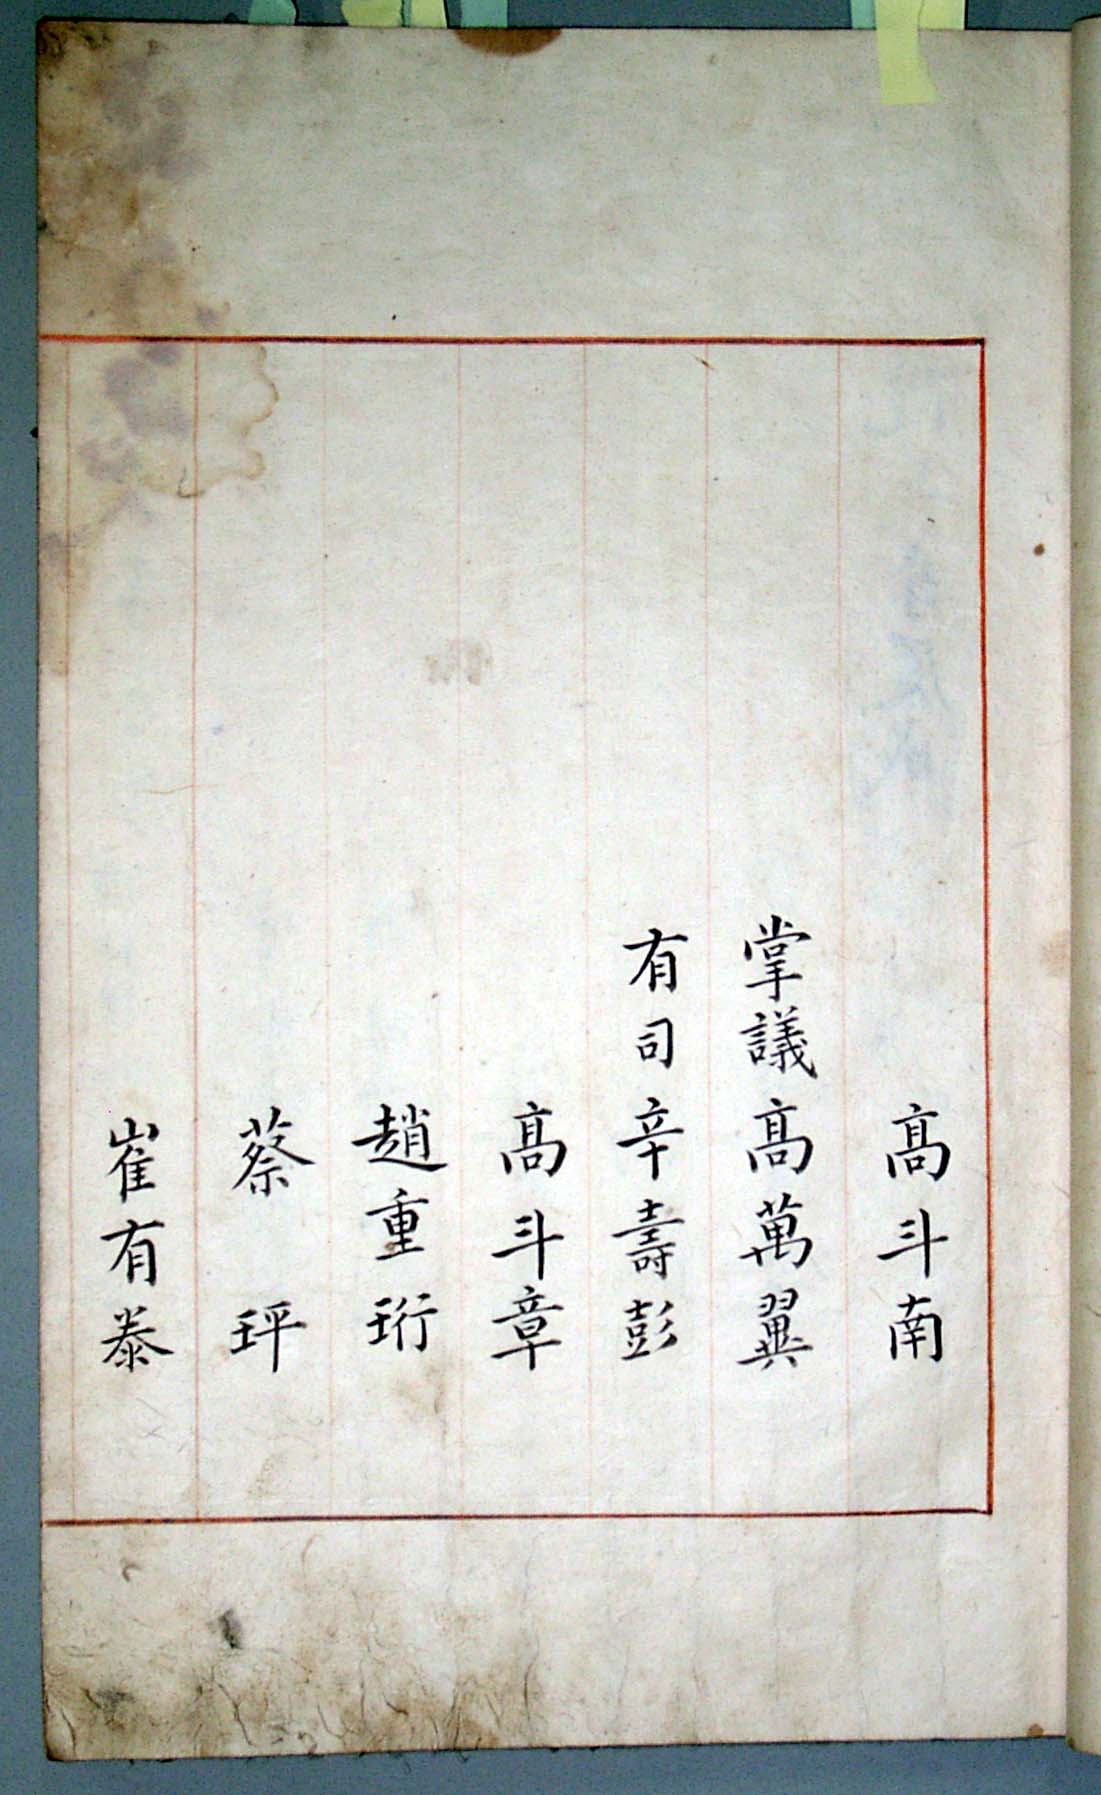 髙斗南
掌議髙萬翼
有司辛壽彭
髙斗章
趙重珩
蔡坪
崔有泰